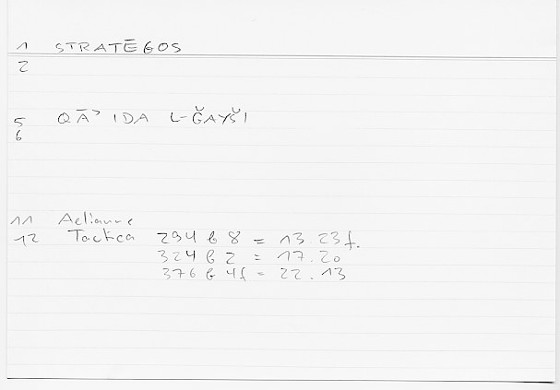 1 STRATĒGOS
2
5 QĀʾIDA L-ǦAYŠI
6
11 Aelianus
12 Tactica 294 b 8 = 13.23f.
324 b 2 = 17.20
376 b 4f = 22.13